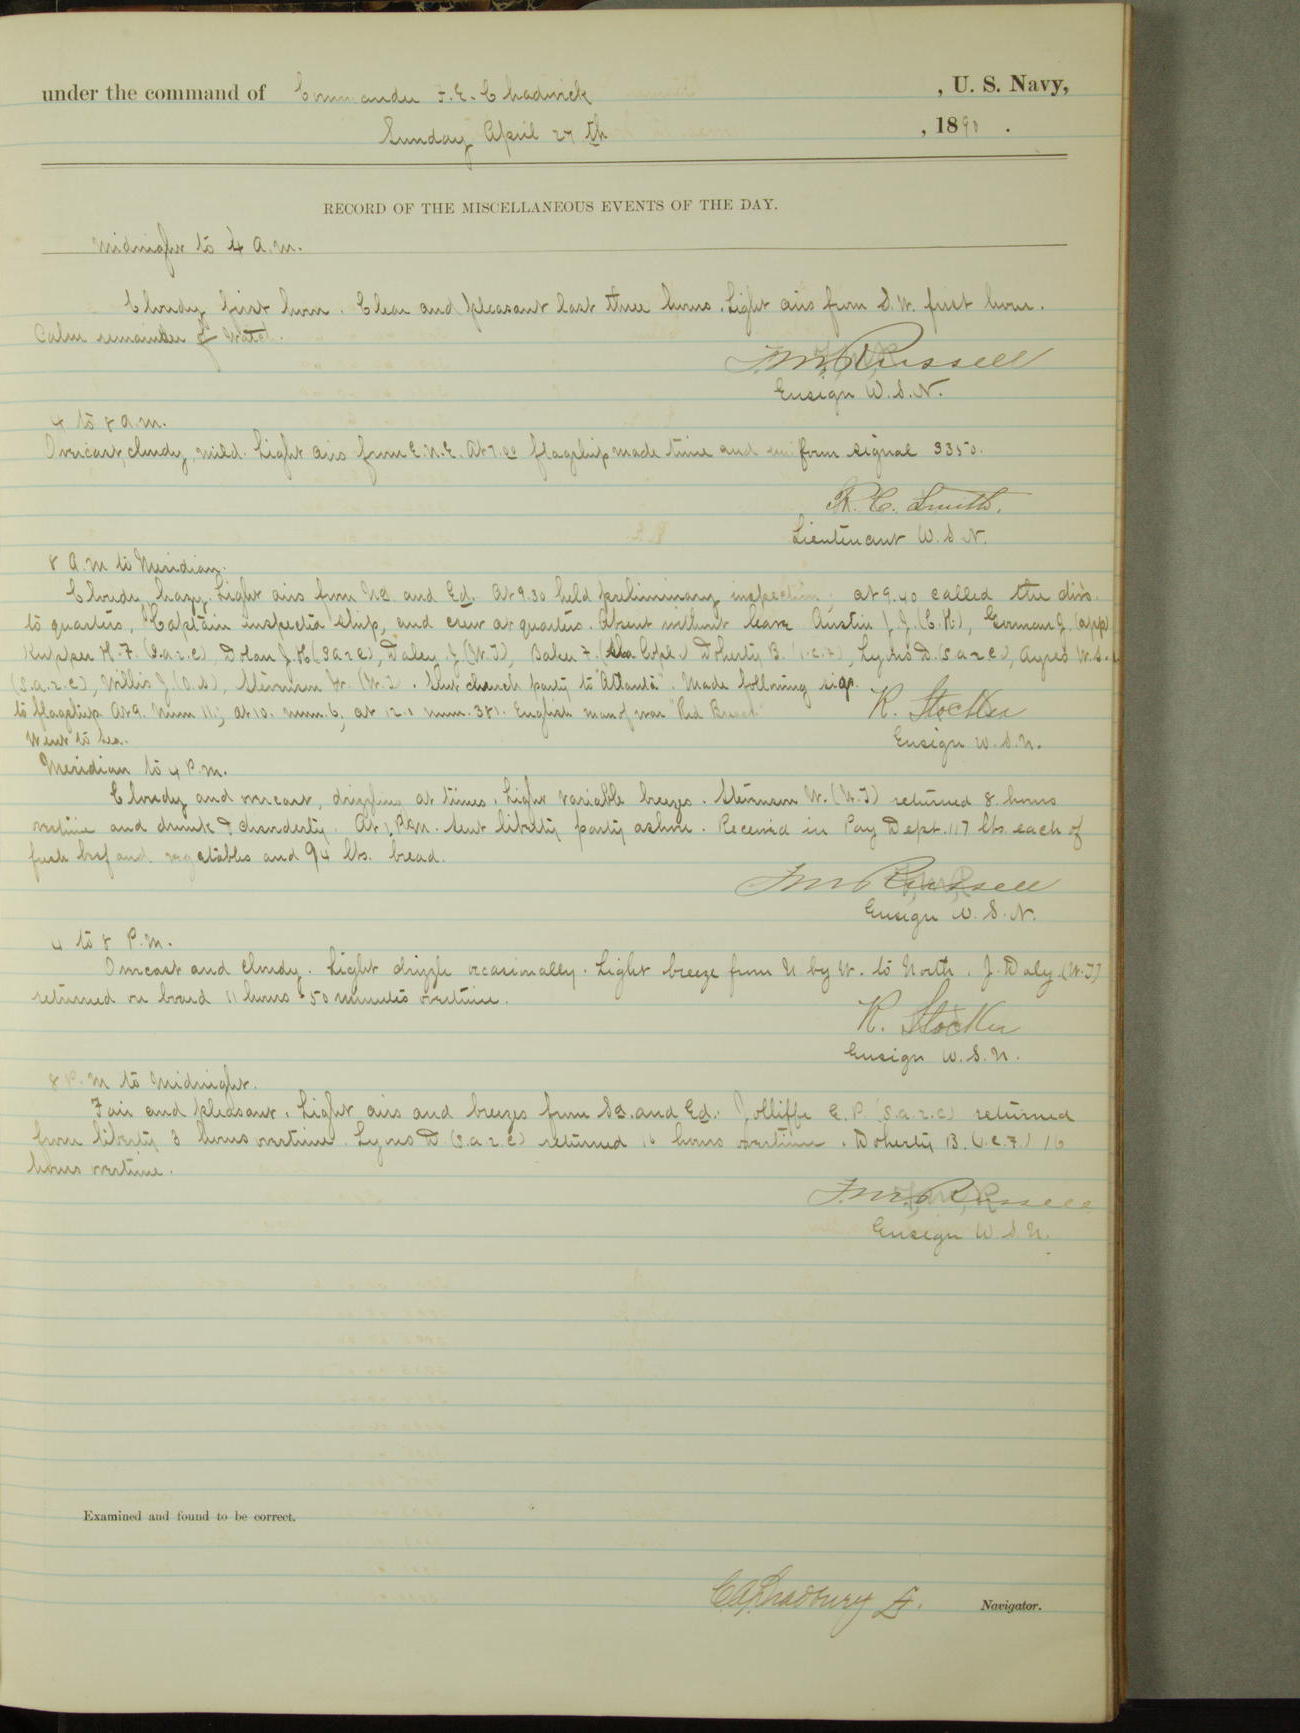 under the command of Commander F. E. Chadwick , U. S. Navy,
Sunday April 27th , 1890 .
RECORD OF THE MISCELLANEOUS EVENTS OF THE DAY.
Midnight to 4 A.M.
Cloudy first hour. Clear and pleasant last three hours. Light airs from S.W. first hour.
Calm remainder of watch.
Russell
Ensign U.S.N.
4 to 8 A.M.
Overcast, cloudy, mild. Light airs from E.N.E. At 7.00 flagship made time and uniform signal 3350.
R. C. Smith.
Lieutenant U.S.N.
8 A.M to Meridian.
Cloudy, hazy. Light airs from Nd. and Ed. At 9.30 held preliminary inspection; at 9.40 called the divs.
to quarters, Captain inspected ship, and crew at quarters. Absent without leave Austin J. J. (C.H), Gorman J. (app)
Kupper H. F. (S.a.2.C), Dolan J. H (S a 2 C), Daley J (W.T), Baker F. Doherty B. (1.C.F), Lyons D. (S a 2 C), Ayres W. S.
(S.a.2.C), Willis J. (O.S), Stevenson W. (W.T). Sent church party to "Atlanta". Made following sigs.
to flagship At 9. num 11; at 10. num. 6; at 12. num. 381. English man of war "Red Breast"
Went to sea.
R. Stocker
Ensign U.S.N.
Meridian to 4 P.M.
Cloudy and overcast, drizzling at times. Light variable breezes. Stevenson W. (W.T) returned 8 hours
overtime and drunk & disorderly. At 1 P.M. sent liberty party ashore. Received in Pay Dept. 117 lbs. each of
fresh beef and vegetables and 94 lbs. bread.
Russell
Ensign U.S.N.
4 to 8 P.M.
Overcast and cloudy. Light drizzle occasionally. Light breeze from N by W. to North. J. Daly (W.T)
returned on board 11 hours & 50 minutes overtime.
R. Stocker
Ensign U.S.N.
8 P.M to Midnight.
Fair and pleasant. Light airs and breezes from Sd. and Ed. Jolliffe E. P. (S.a.2.C) returned
from liberty 3 hours overtime. Lyons D. (S.a.2.C) returned 16 hours overtime. Doherty B. (1.C.F) 16
hours overtime.
Russell
Ensign U.S.N.
Examined and found to be correct.
Navigator.